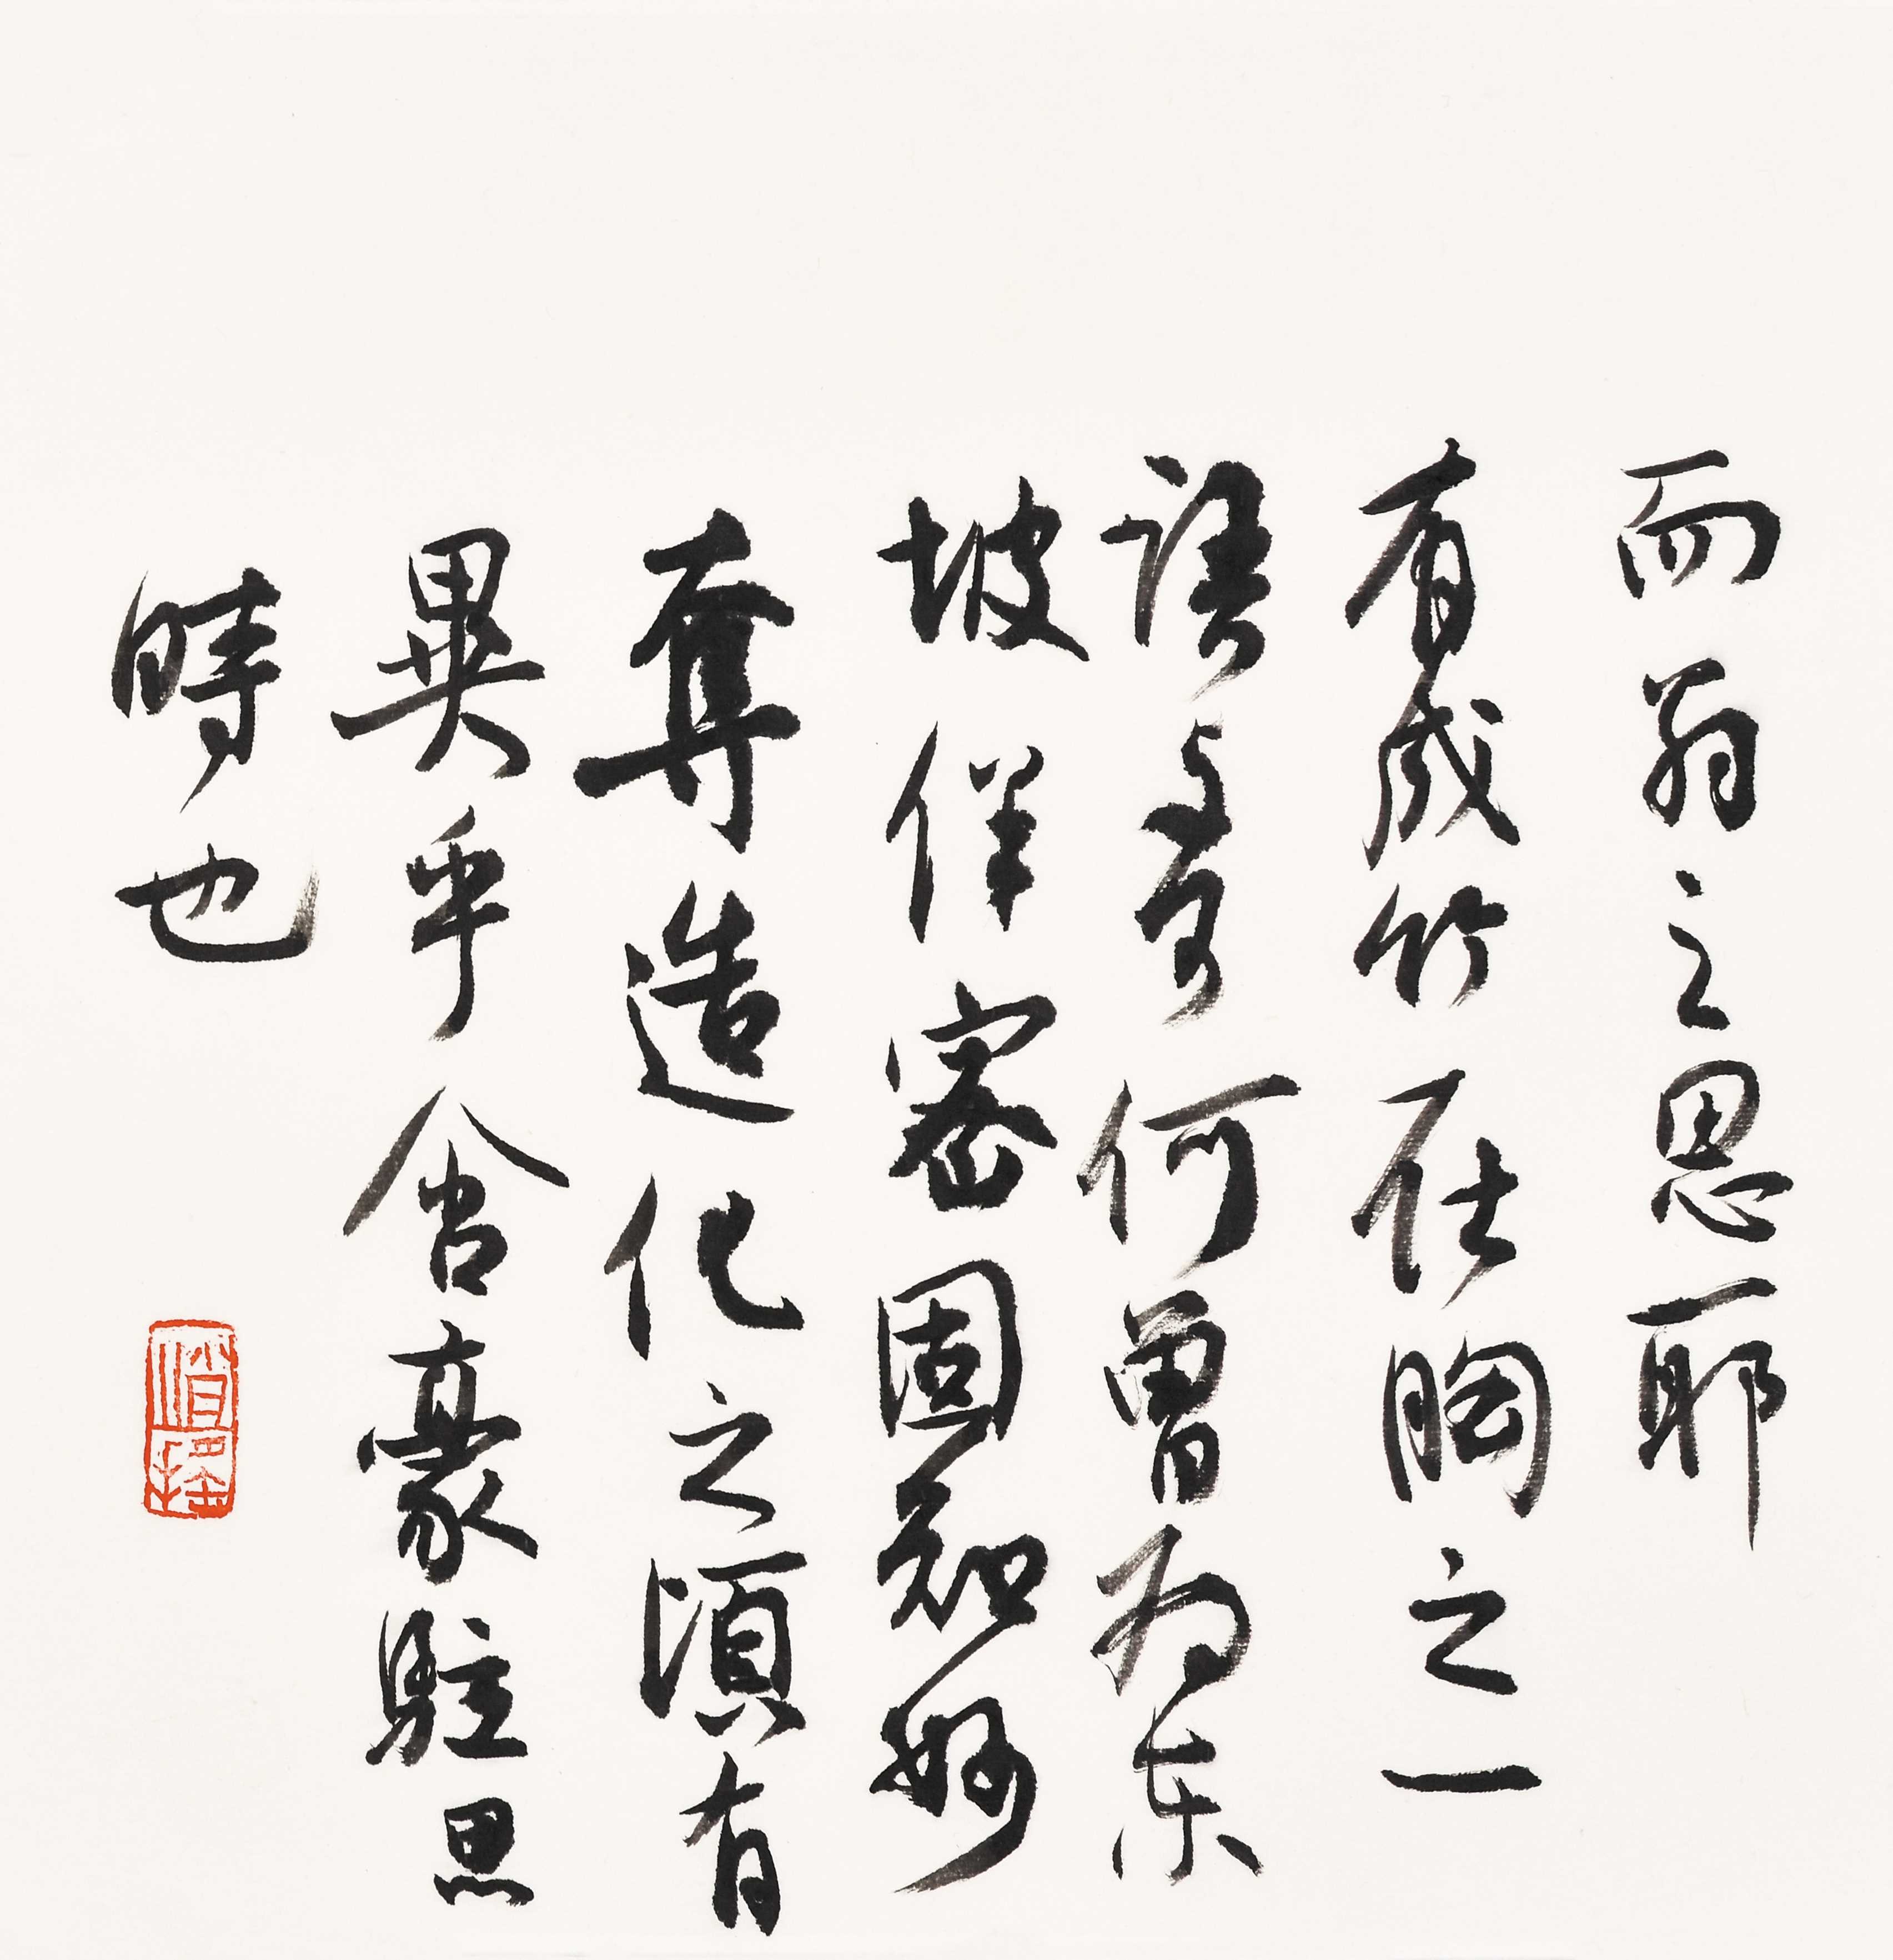 而翁之思耶
有成竹在胸之一
語与可何曾为東
坡佯審固知妙
奪造化之頃有
異乎含豪駐思
時也